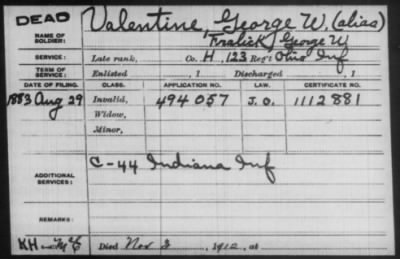 DEAD
NAME OF SOLDIER: Valentine, George W. (alias)
Fralick, George W
SERVICE: Late rank, Co. H, 123 Reg't Ohio Inf
TERM OF SERVICE: Enlisted , 1 Discharged , 1
DATE OF FILING. CLASS. APPLICATION NO. LAW. CERTIFICATE NO.
1883 Aug 29 Invalid, 494057 J.O. 1112881
Widow,
Minor,
ADDITIONAL SERVICES: C-44 Indiana Inf
REMARKS:
Died Nov 3 , 1912, at